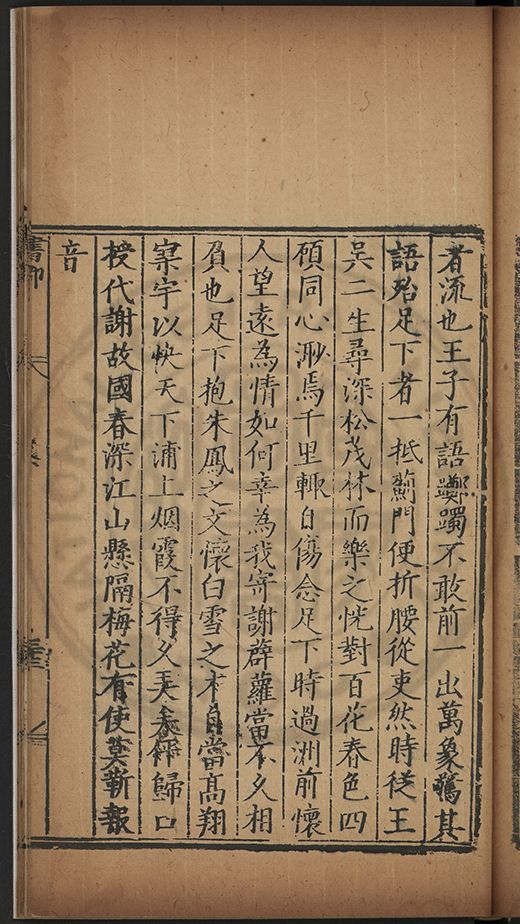 者流也王子有語躑躅不敢前一出萬象驚其
語殆足下者一抵薊門便折腰從吏然時從王
吴二生尋深松茂林而樂之恍對百花春色四
顧同心渺焉千里輙自傷念足下時過洲前懷
人望遠為情如何幸為我寄謝薜蘿當不乆相
負也足下抱朱鳳之文懷白雪之才自當高翔
寀宇以快天下浦上烟霞不得乆歸口
授代謝故國春深江山懸隔梅花有使莫靳報
音